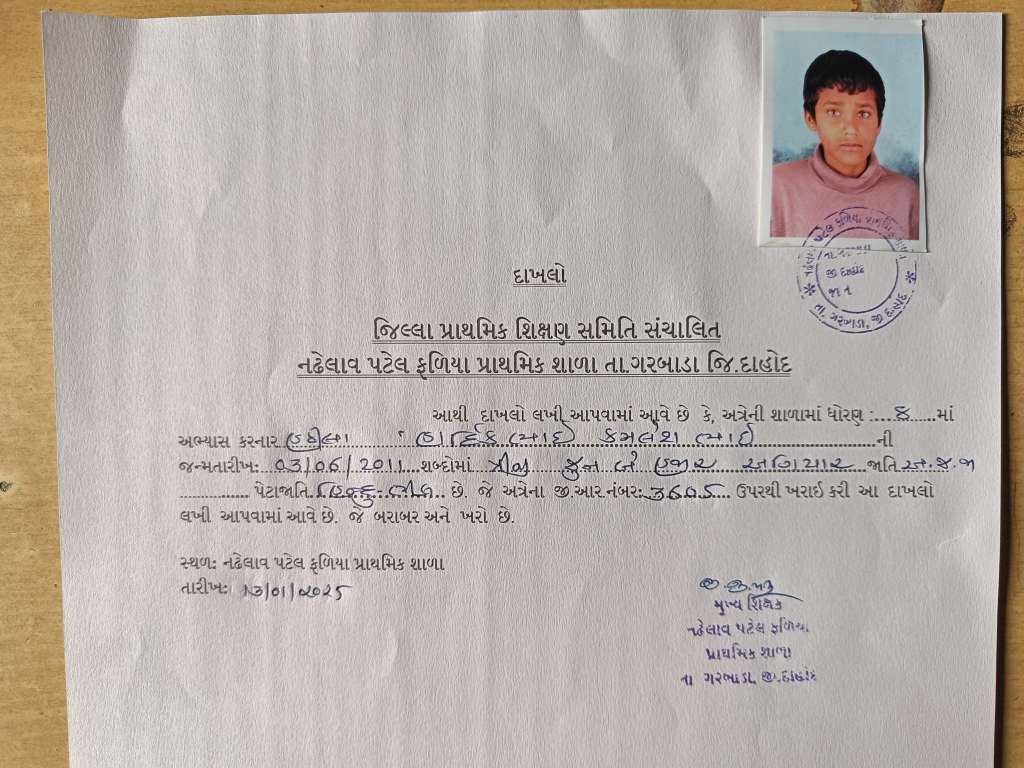 દાખલો
જિલ્લા પ્રાથમિક શિક્ષણ સમિતિ સંચાલિત
નઢેલાવ પટેલ ફળિયા પ્રાથમિક શાળા તા.ગરબાડા જિ.દાહોદ
આથી દાખલો લખી આપવામાં આવે છે કે, અત્રેની શાળામાં ધોરણ :....૪......માં
અભ્યાસ કરનાર હઠીલા હાર્દિકભાઈ કમલેશભાઈ ની
જન્મતારીખ: 03/06/2011 શબ્દોમાં ત્રીજી જુન બે હજાર અગિયાર જાતિ અ.જ.જા
પેટાજાતિ હિન્દુ ભીલ છે. જે અત્રેના જી.આર નંબર: 3605 ઉપરથી ખરાઈ કરી આ દાખલો
લખી આપવામાં આવે છે. જે બરાબર અને ખરો છે.
સ્થળ: નઢેલાવ પટેલ ફળિયા પ્રાથમિક શાળા
તારીખ: 13/01/2025
મુખ્ય શિક્ષક
નઢેલાવ પટેલ ફળિયા
પ્રાથમિક શાળા
તા ગરબાડા, જી.દાહોદ